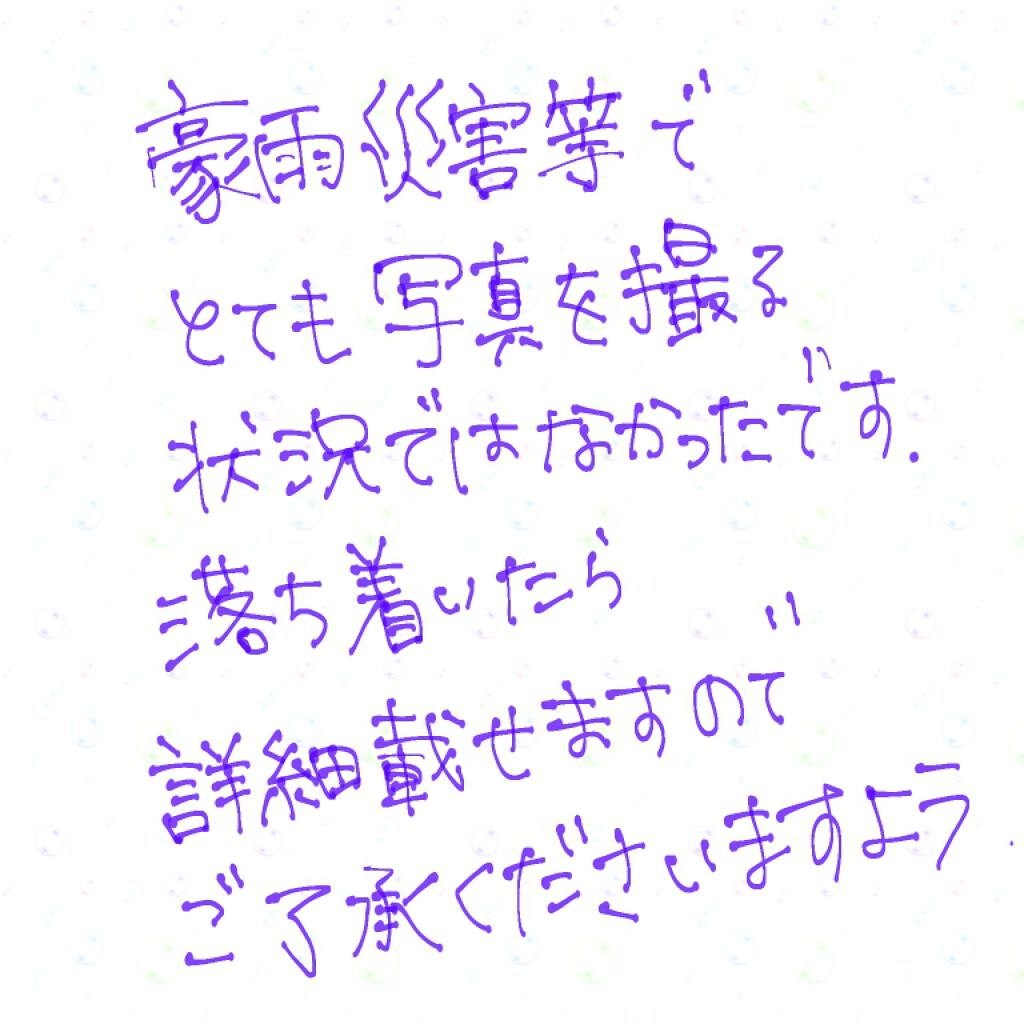 豪雨災害等で
とても写真を撮る
状況ではなかったです.
落ち着いたら
詳細載せますので
ご了承くださいますよう